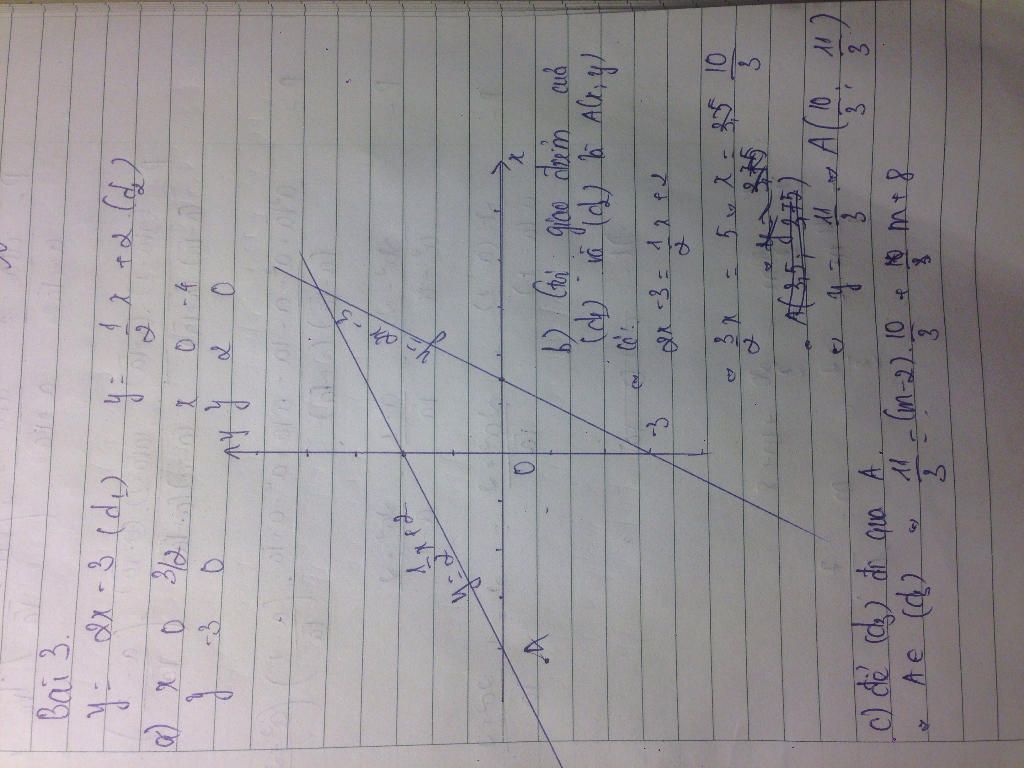 Bài 3.
y = 2x - 3 (d₁) y = 1/2 x + 2 (d₂)
a) x 0 3/2 x 0 -4
y -3 0 y 2 0
y
x
O
2
-3
A
b) Gọi giao điểm của
(d₁) và (d₂) là A(x, y)
có:
2x - 3 = 1/2 x + 2
3/2 x = 5 x = 10/3
y = 11/3 A(10/3; 11/3)
c) để (d₃) đi qua A
A ∈ (d₃) 11/3 = (m-2). 10/3 + m + 8